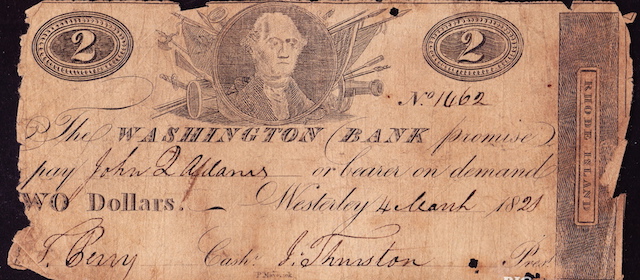 2 2
No 1462
The WASHINGTON BANK promise
pay John Q Adams or bearer on demand
WO Dollars. Westerley 4 March 1821
T. Perry Cashr J. Thurston Prest
RHODE ISLAND